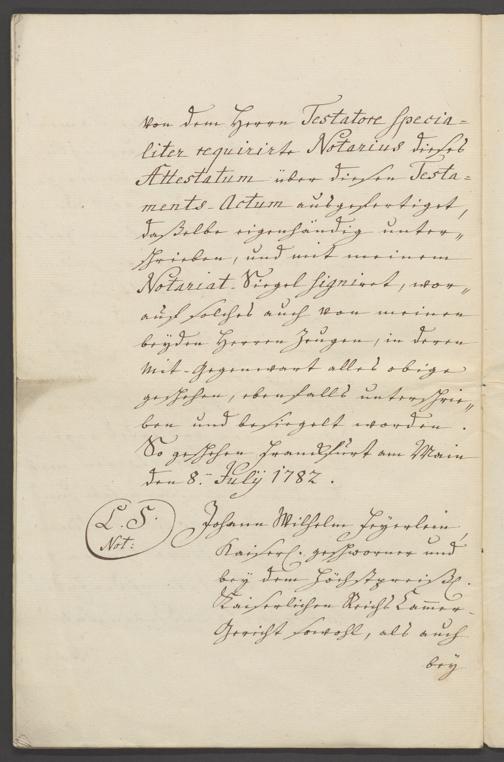 von dem Herrn Testatore specia=
liter requirirte Notarius dieses
Attestatum über diesen Testa=
ments-Actum ausgefertiget,
dasselbe eigenhändig unter„
schrieben, und mit meinem
Notariat-Siegel signiret, wor„
auf solches auch von meinen
beyden Herren Zeugen, in deren
Mit-Gegenwart alles obige
geschehen, ebenfalls unterschrie„
ben und besiegelt worden.
So geschehen Franckfurt am Main
den 8.ten July 1782.
L. S.
Not:
Johann Wilhelm Feyerlein,
Kaiserl. geschworner und
bey dem Höchstpreißl.
Kaiserlichen Reichs Cammer-
Gericht sowohl, als auch
bey